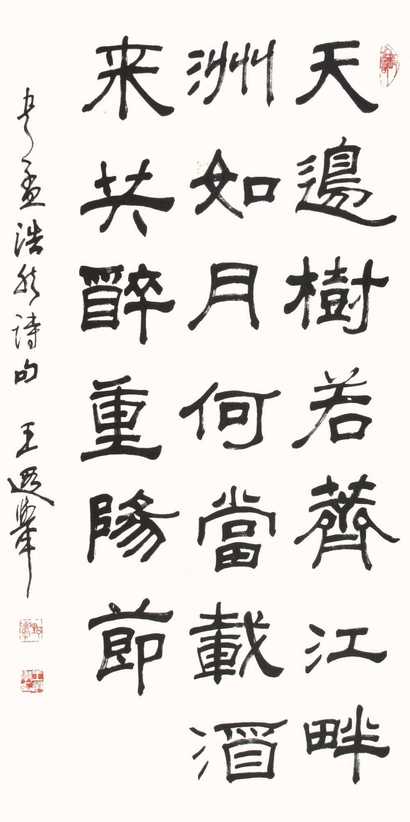 天邊樹若薺江畔
洲如月何當載酒
来共醉重陽節
書孟浩然詩句 王遐舉